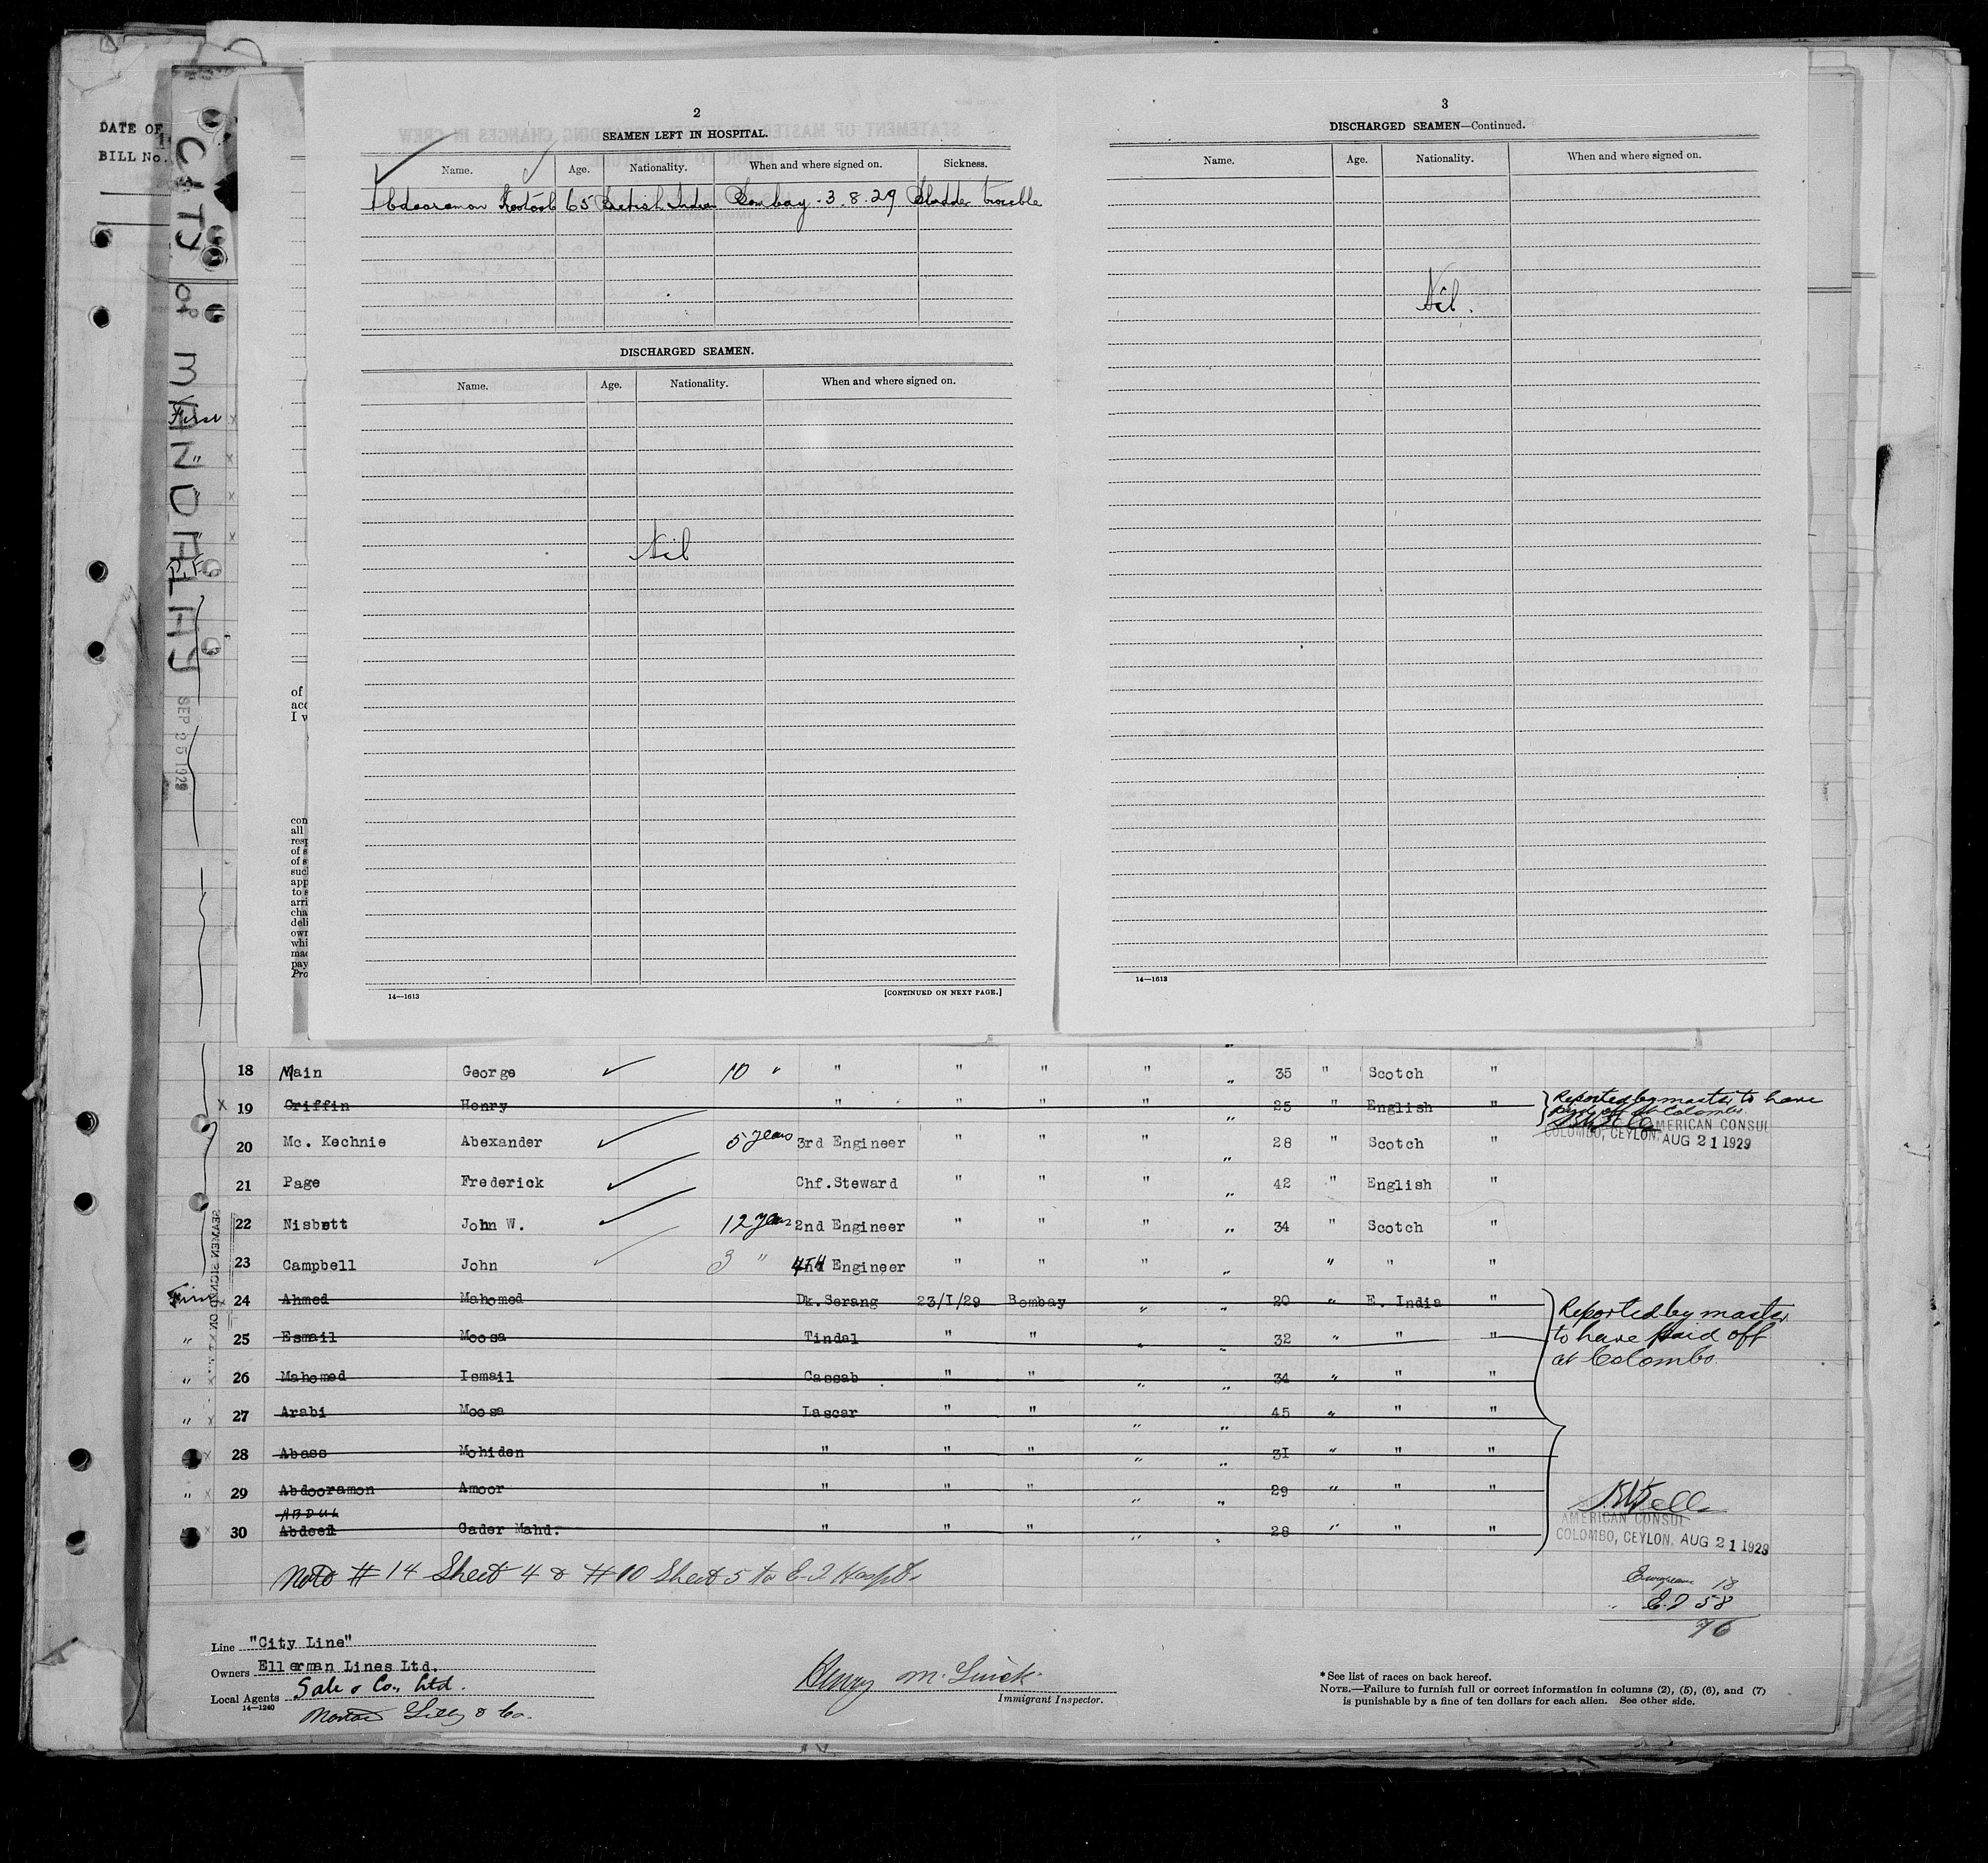 DATE OF
BILL No.
CITY OF MANDALAY
SEP 25 1929
2
SEAMEN LEFT IN HOSPITAL.
Name. Age. Nationality. When and where signed on. Sickness.
Abdooramon Kootoob 65 British Indian Bombay - 3.8.29 Bladder trouble
DISCHARGED SEAMEN.
Name. Age. Nationality. When and where signed on.
Nil
14—1613 [CONTINUED ON NEXT PAGE.]
3
DISCHARGED SEAMEN—Continued.
Name. Age. Nationality. When and where signed on.
Nil.
14—1613
First
"
"
"
of
acc
I w
con
all
resp
of s
of s
such
app
to s
arri
cha
deli
own
whi
mad
pay
Pro
18 Main George 10 " " " " " " 35 " Scotch "
19 Griffin Henry " " " " " 25 " English " Reported by master to have
paid off at Colombo.
AMERICAN CONSUL
COLOMBO, CEYLON. AUG 21 1929
20 Mc. Kechnie Abexander 5 years 3rd Engineer " " " " 28 " Scotch "
21 Page Frederick Chf.Steward " " " " 42 " English "
22 Nisbett John W. 12 years 2nd Engineer " " " " 34 " Scotch "
23 Campbell John 3 " 4th Engineer " " " " " " "
First 24 Ahmed Mahomed Dk.Serang 23/I/29 Bombay " " 20 " E. India "
" 25 Esmail Moosa Tindal " " " " 32 " " "
" 26 Mahomed Ismail Cassab " " " " 34 " " "
" 27 Arabi Moosa Lascar " " " " 45 " " "
28 Abass Mohiden " " " " " 3I " " "
" 29 Abdooramon Amoor " " " " " 29 " " "
ABDUL
30 Abdeen Cader Mahd. " " " " " 28 " " "
Reported by master
to have paid off
at Colombo.
AMERICAN CONSUL
COLOMBO, CEYLON. AUG 21 1929
SEAMEN SIGNED ON
Note # 14 Sheet 4 & # 10 Sheet 5 to E-I Hospt.
European 18
E.I 58
76
Line "City Line"
Owners Ellerman Lines Ltd.
Local Agents Sale & Co., Ltd.
14—1240
Norton Lilly & Co.
Henry
Immigrant Inspector.
* See list of races on back hereof.
NOTE.—Failure to furnish full or correct information in columns (2), (5), (6), and (7)
is punishable by a fine of ten dollars for each alien. See other side.